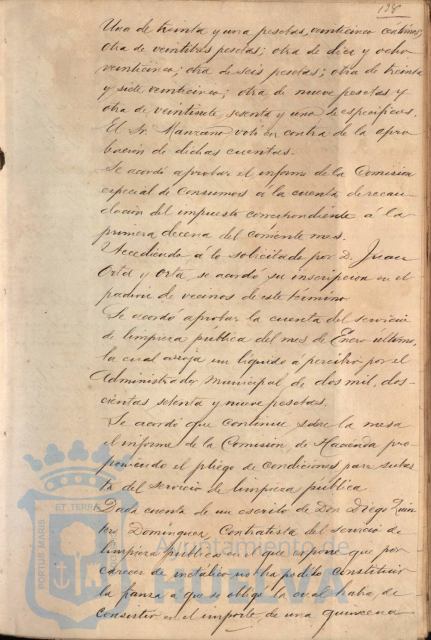 128
Una de treinta y una pesetas, veinticinco céntimos;
otra de veintitres pesetas; otra de diez y ocho
veinticinco; otra de seis pesetas; otra de treinta
y siete veinticinco; otra de nueve pesetas y
otra de veintisiete, sesenta y una de específicos.
El Sr. Manzano votó en contra de la apro
bación de dichas cuentas.
Se acordó aprobar el informe de la Comisión
especial de Consumos á la cuenta de recau
dación del impuesto correspondiente á la
primera decena del corriente mes.
Accediendo á lo solicitado por D. Juan
Orta y Orta se acordó su inscripcion en el
padron de vecinos de este término
Se acordó aprobar la cuenta del servicio
de limpieza pública del mes de Enero último,
la cual arroja un líquido á percibir por el
Administrador Municipal, de dos mil, dos-
cientas setenta y nueve pesetas.
Se acordó que continue sobre la mesa
el informe de la Comision de Hacienda pro
poniendo el pliego de condiciones para subas
ta del servicio de limpieza pública
Dada cuenta de un escrito de Don Diego
Dominguez, Contratista del servicio de
limpieza pública en el que expone que por
carecer de metálico no ha podido constituir
la fianza a que se obligó la cual había de
consistir en el importe de una quincena
PORTUS MARIS ET TERRAE
Ayuntamiento de
HUELVA